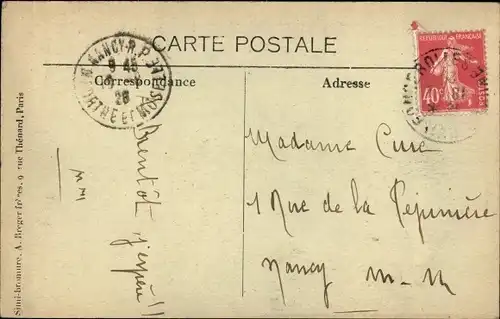 CARTE POSTALE
Correspondance
Adresse
NANCY-R.P.
MEURTHE ET MOSELLE
9 45
26
RÉPUBLIQUE FRANÇAISE
40c
A Bientôt
j'espère !!
Madame Cure
1 Rue de la Pépinière
Nancy M-M
Simi-bromure, A. Breger frères, 9 rue Thénard, Paris